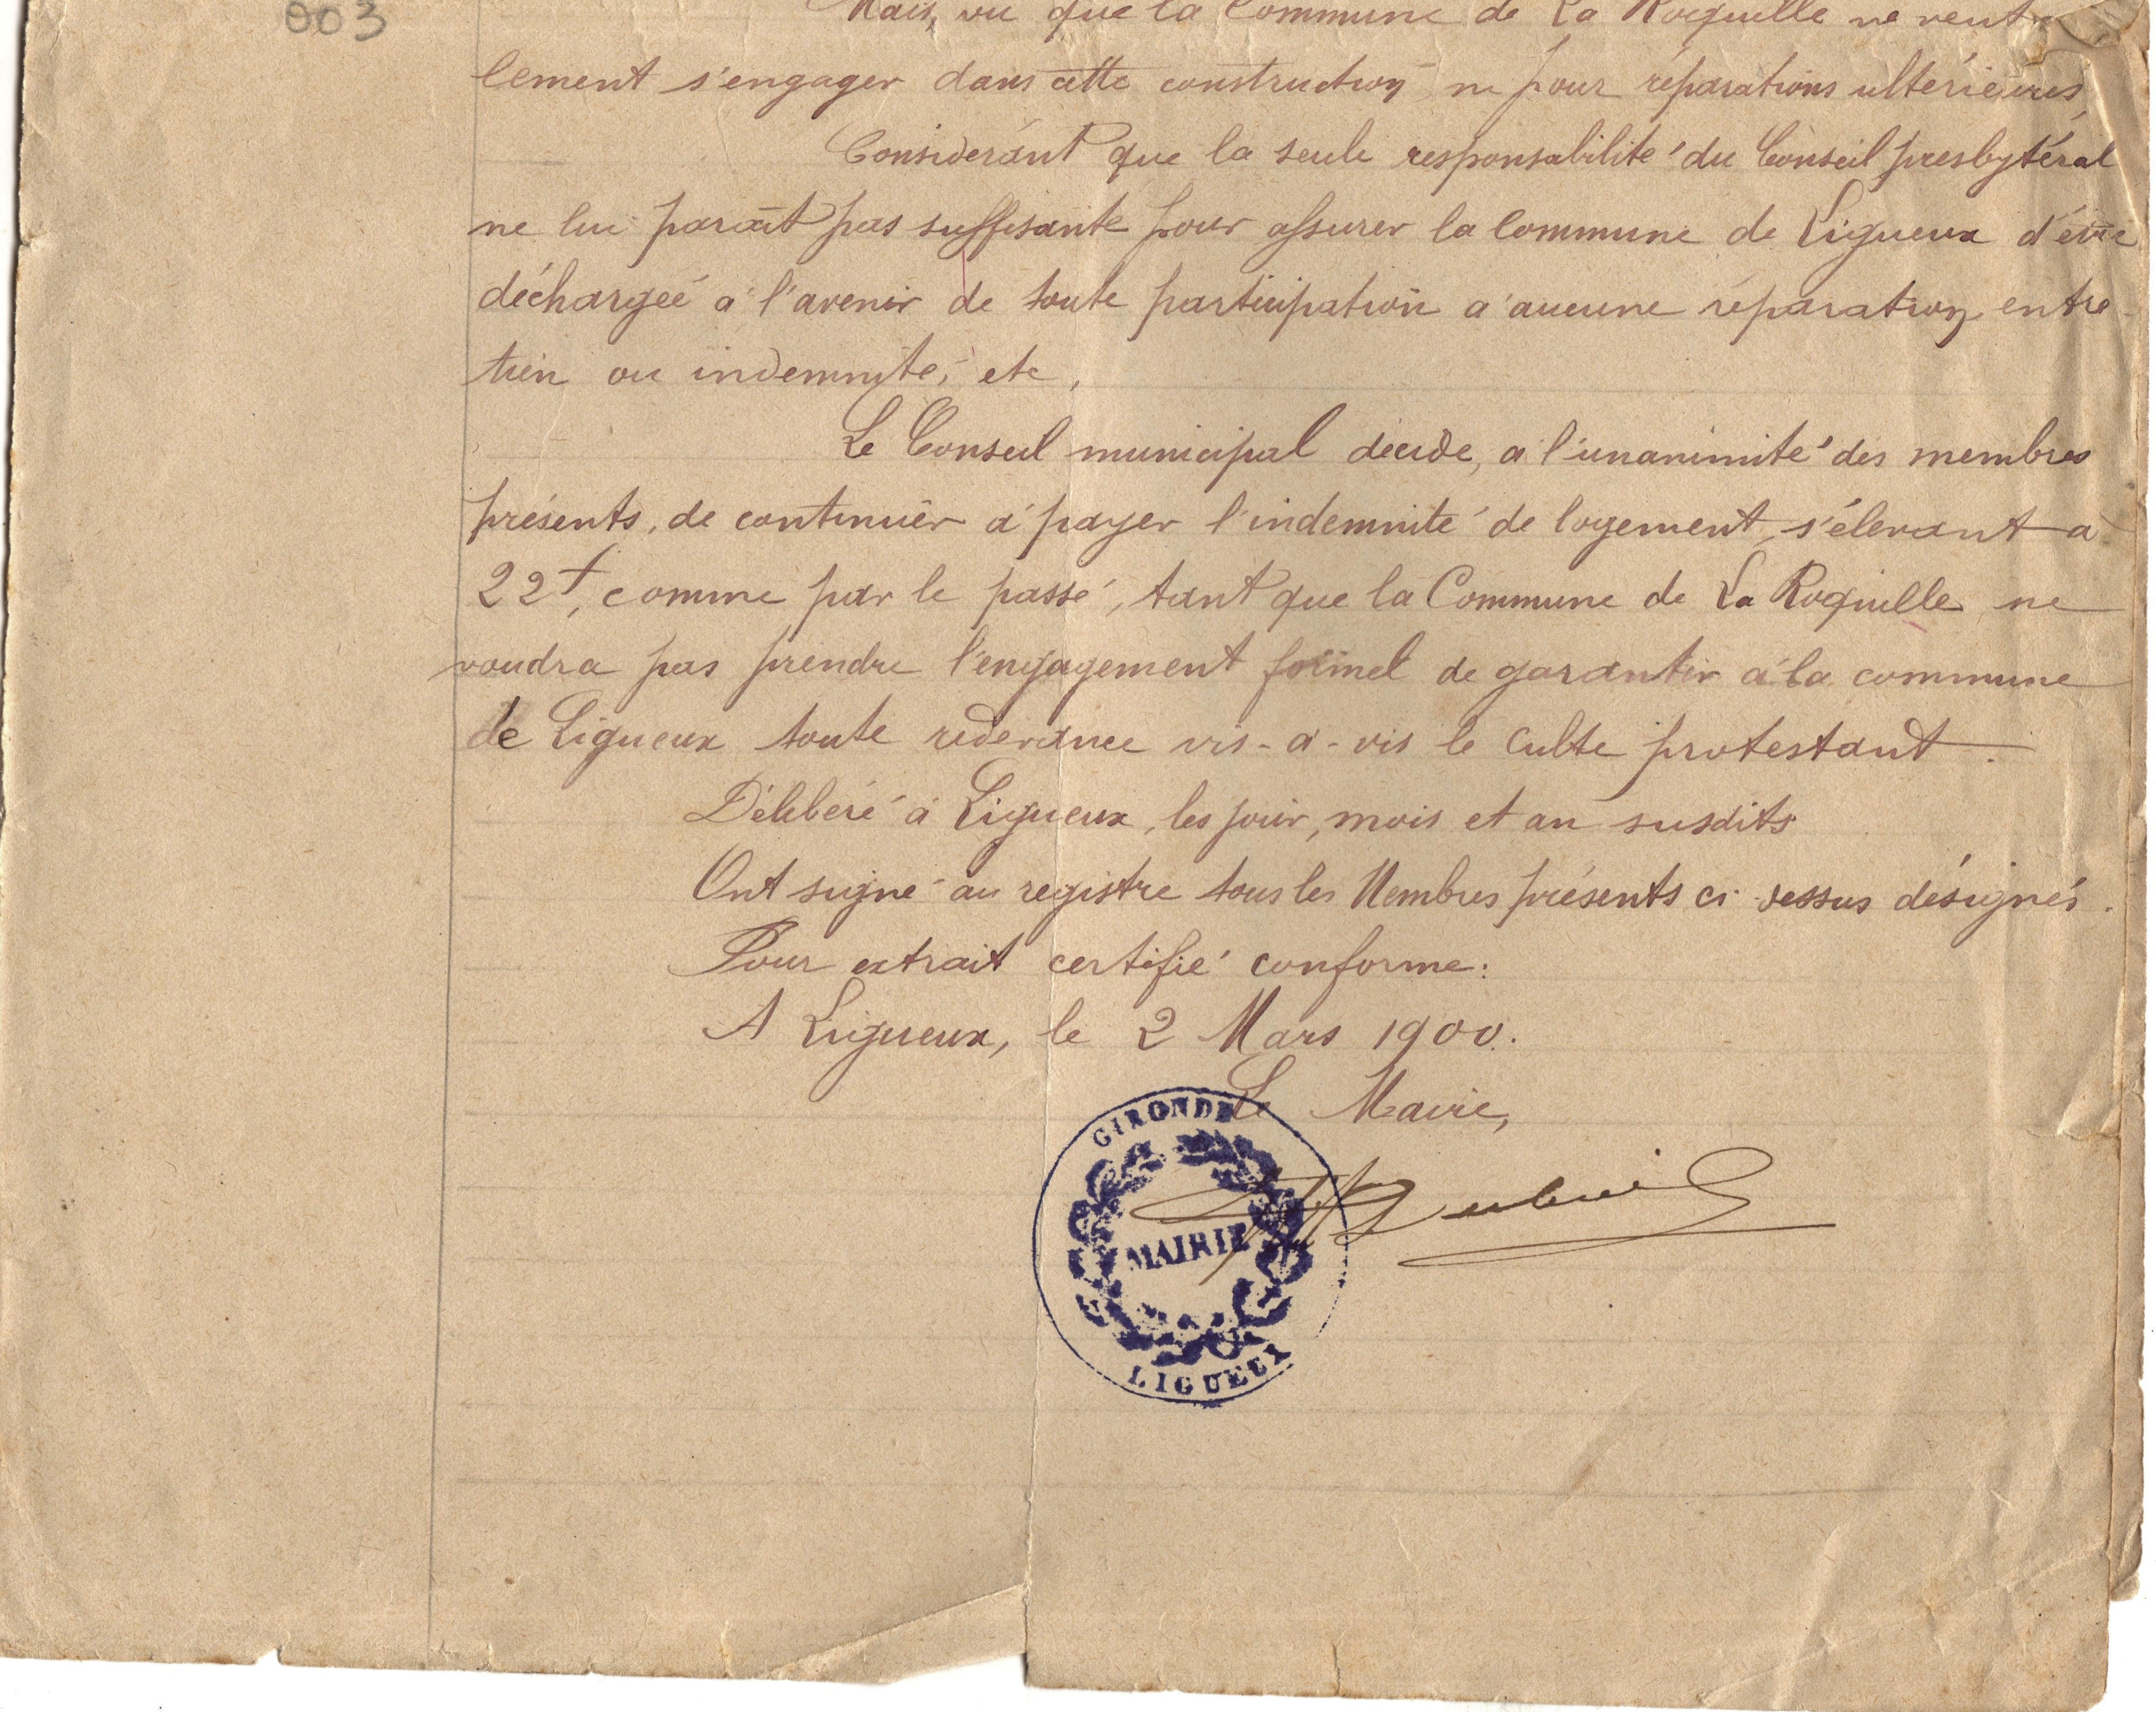 003
Mais, vu que la Commune de La Roquille ne veut
lement s'engager dans cette construction ni pour réparations ultérieures,
Considérant que la seule responsabilité du Conseil presbytéral
ne lui paraît pas suffisante pour assurer la Commune de Ligueux d'être
déchargée à l'avenir de toute participation à aucune réparation, entre-
tien ou indemnité, etc,
Le Conseil municipal décide, à l'unanimité des membres
présents, de continuer à payer l'indemnité de logement, s'élevant à
22f, comme par le passé, tant que la Commune de La Roquille ne
voudra pas prendre l'engagement formel de garantir à la commune
de Ligueux toute redevance vis-à-vis le Culte protestant.
Délibéré à Ligueux, les jour, mois et an susdits
Ont signé au registre tous les Membres présents ci-dessus désignés.
Pour extrait certifié conforme:
A Ligueux, le 2 Mars 1900.
Le Maire,
GIRONDE
MAIRIE
LIGUEUX